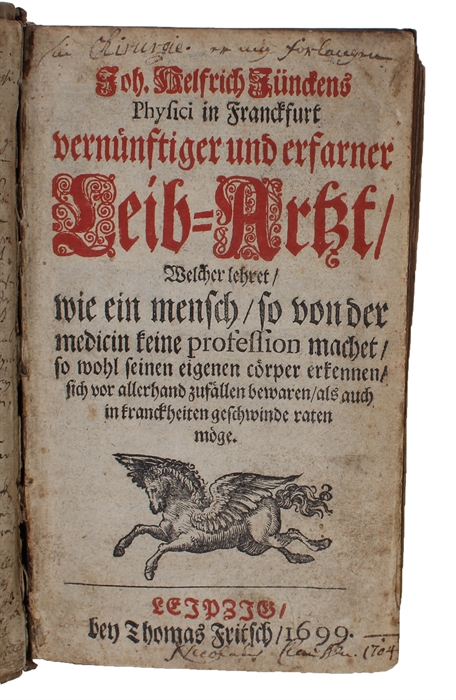 Chirurgie.
Joh. Helfrich Jünckens
Physici in Franckfurt
vernünftiger und erfarner
Leib=Artzt/
Welcher lehret/
wie ein mensch/ so von der
medicin keine profession machet/
so wohl seinen eigenen cörper erkennen/
sich vor allerhand zufällen bewaren/ als auch
in kranckheiten geschwinde raten
möge.
LEIPZIG/
bey Thomas Fritsch/ 1699.
1704